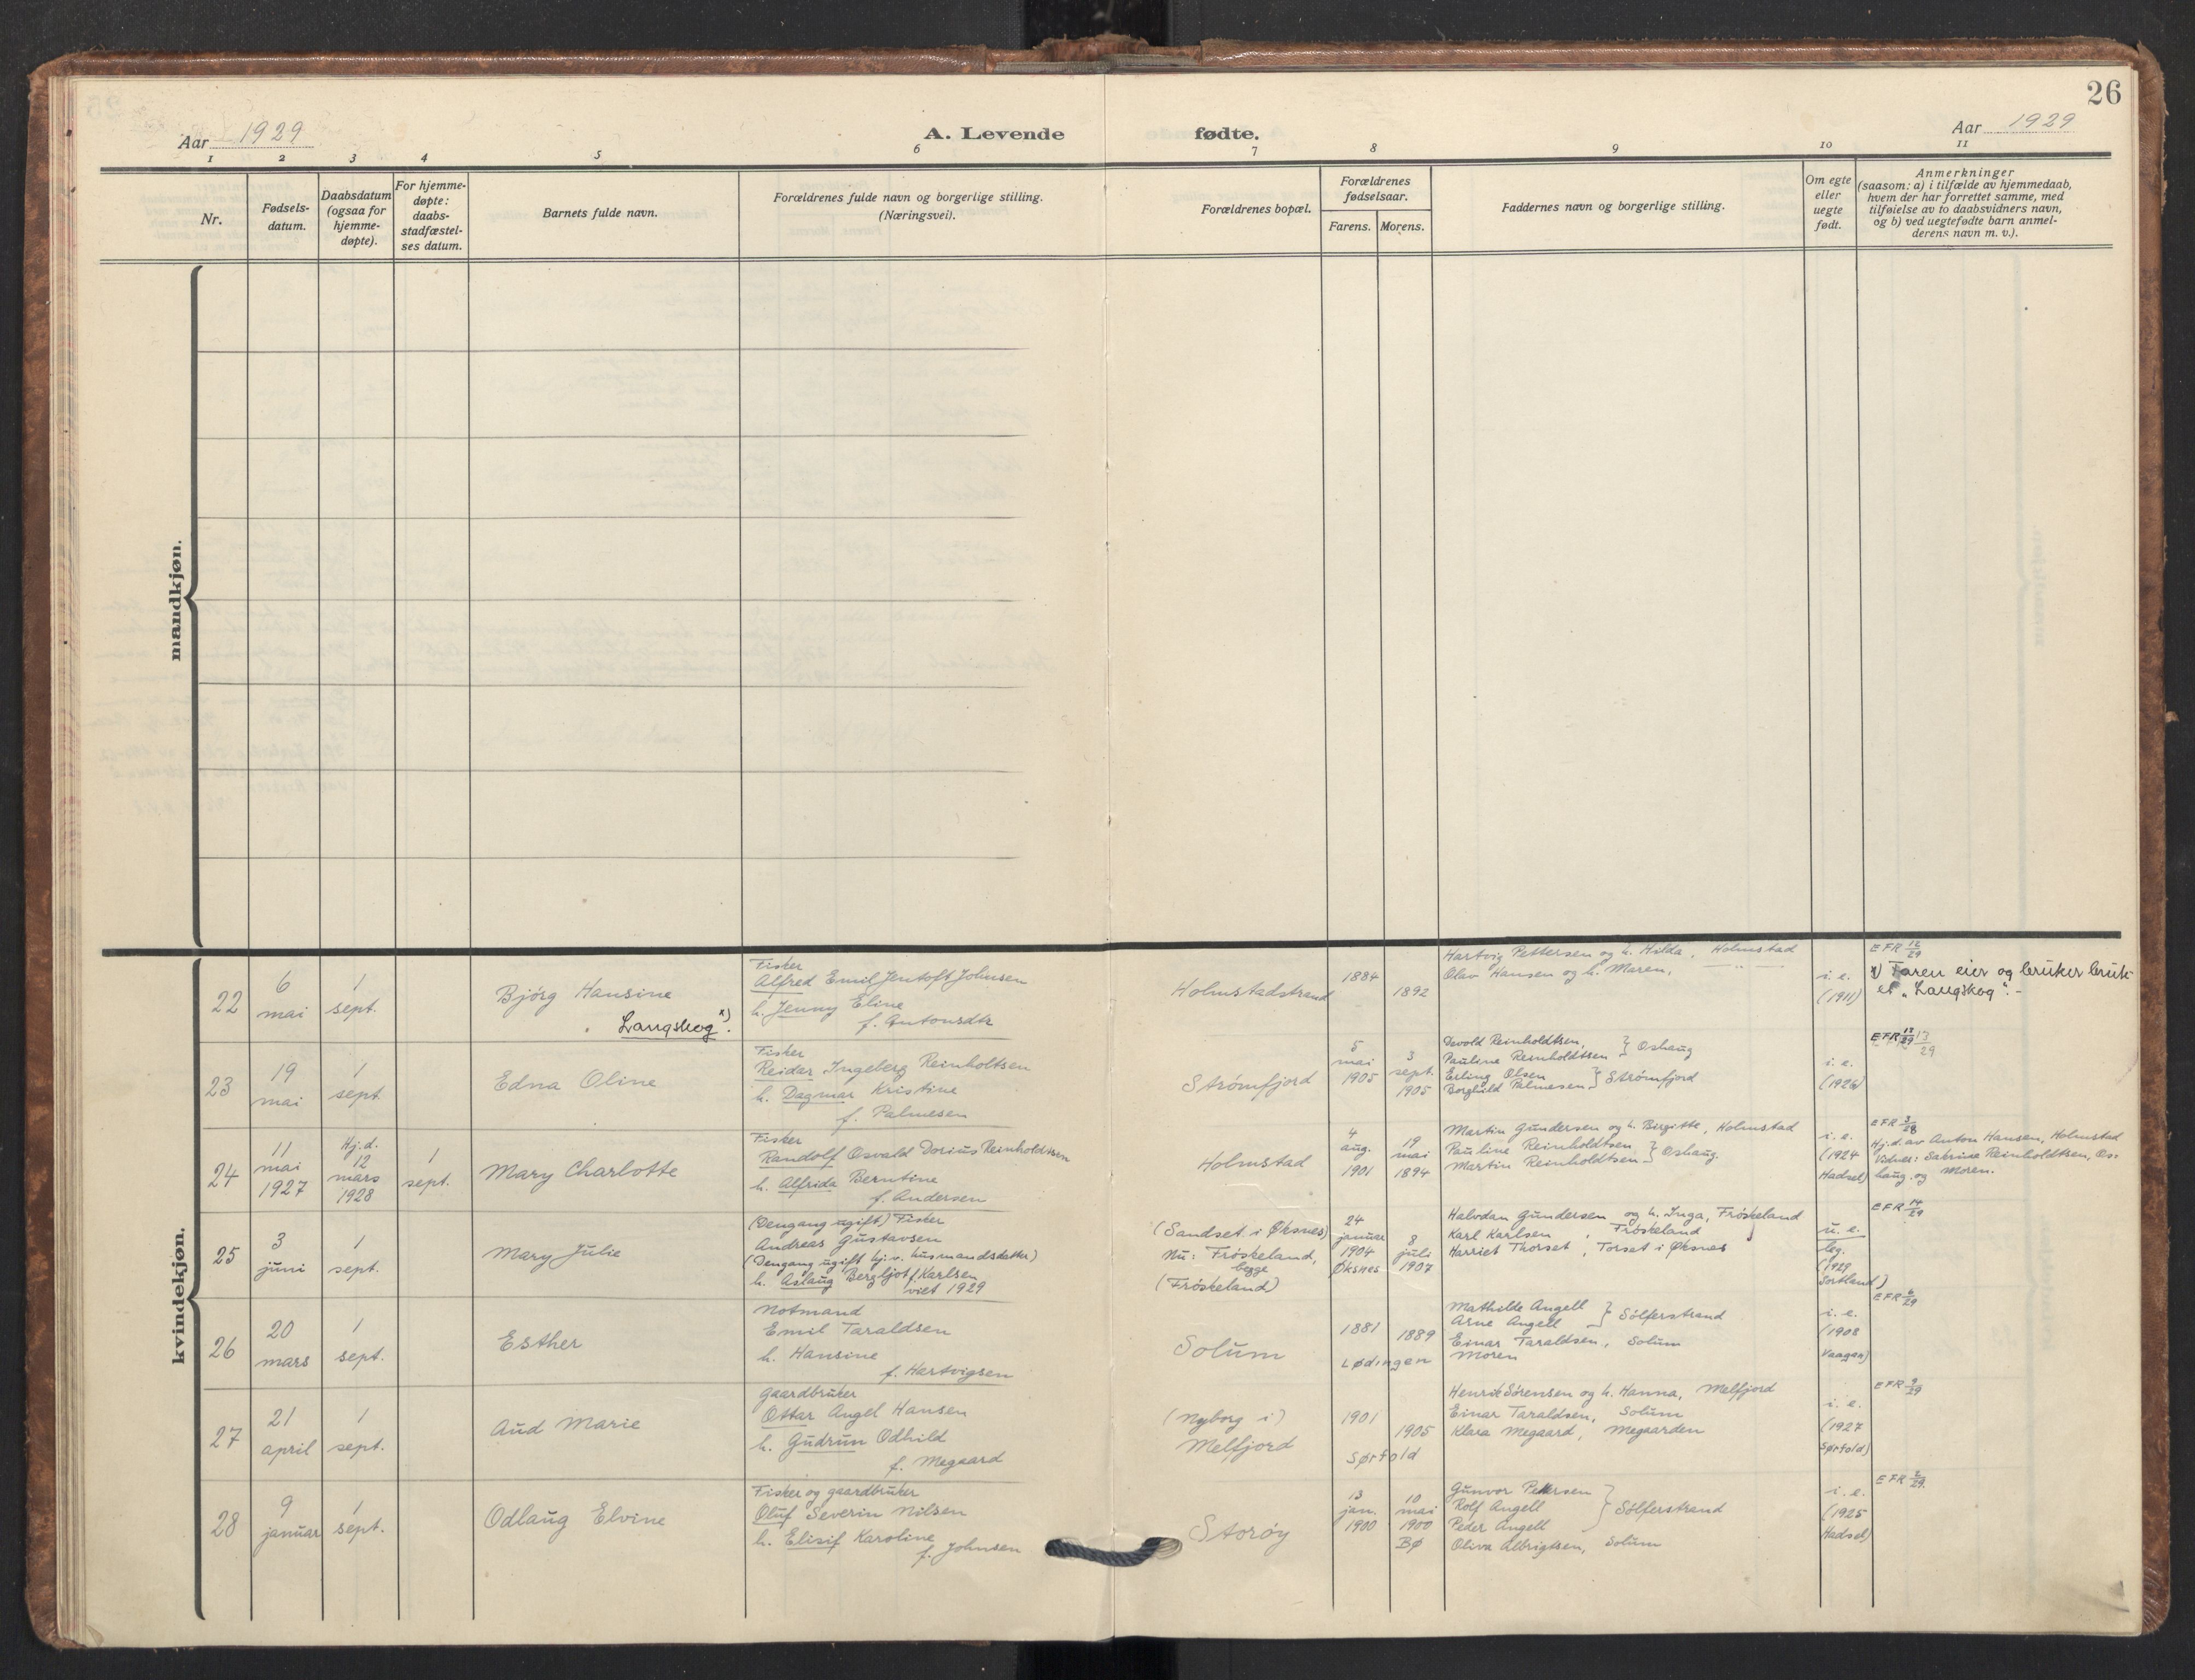 26
Aar 1929
A. Levende
fødte.
Aar 1929
1 2 3 4 5 6 7 8 9 10 11
Nr.
Fødsels-
datum.
Daabsdatum
(ogsaa for
hjemme-
døpte).
For hjemme-
døpte:
daabs-
stadfæstel-
ses datum.
Barnets fulde navn.
Forældrenes fulde navn og borgerlige stilling.
(Næringsvei).
Forældrenes bopæl.
Forældrenes
fødselsaar.
Farens. Morens.
Faddernes navn og borgerlige stilling.
Om egte
eller
uegte
født.
Anmerkninger
(saasom: a) i tilfælde av hjemmedaab,
hvem der har forrettet samme, med
tilføielse av to daabsvidners navn,
og b) ved uegtefødte barn anmel-
derens navn m. v.).
mandkjøn.
kvindekjøn.
22
6
mai
1
sept.
Bjørg Hansine
Langskog x).
Fisker
Alfred Emil Jentoft Johnsen
h. Jenny Eline
f. Antonsdtr
Holmstadstrand
1884
1892
Hartvig Pettersen og h. Hilda, Holmstad
Olav Hansen og h. Maren, — " —
i. e.
(1911)
EFR 12/29
x) Faren eier og bruker bruk-
et „Langskog". -
23
19
mai
1
sept.
Edna Oline
Fisker
Reidar Ingeberg Reinholtsen
h. Dagmar Kristine
f. Palmesen
Strømfjord
5
mai
1905
3
sept.
1905
Devold Reinholdtsen,
Pauline Reinholdtsen } Oshaug
Erling Olsen
Borghild Palmesen } Strømfjord
i. e.
(1926)
EFR 13/29 13/29
24
11
mai
1927
Hj.d.
12
mars
1928
1
sept.
Mary Charlotte
Fisker
Randolf Osvald Dorius Reinholdtsen
h. Alfrida Berntine
f. Andersen
Holmstad
4
aug.
1901
19
mai
1894
Martin Gundersen og h. Birgitte, Holmstad
Pauline Reinholdtsen
Martin Reinholdtsen } Oshaug.
i. e.
(1924
Hadsel)
EFR 3/28
Hj.d. av Anton Hansen, Holmstad
Vidner: Sabrine Reinholdtsen, Os-
haug. og Moren.
25
3
juni
1
sept.
Mary Julie
(Dengang ugift) Fisker
Andreas Gustavsen
(Dengang ugift hj.v. husmandsdatter)
h. Aslaug Bergljot f. Karlsen
viet 1929
(Sandset i Øksnes)
Nu: Frøskeland,
begge
(Frøskeland)
24
januar
1904
Øksnes
8
juli
1907
Halvdan Gundersen og h. Inga, Frøskeland
Karl Karlsen, Frøskeland
Harriet Thorset, Torset i Øksnes
u. e.
leg.
(1929
Sortland)
EFR 14/29
26
20
mars
1
sept.
Esther
Notmand
Emil Taraldsen
h. Hansine
f. Hartvigsen
Solum
1881
1889
Lødingen
Mathilde Angell
Arne Angell } Sølferstrand
Einar Taraldsen, Solum
Moren
i. e.
(1908
Vaagan)
EFR 6/29
27
21
april
1
sept.
Aud Marie
Gaardbruker
Ottar Angel Hansen
h. Gudrun Odhild
f. Megaard
(Nyborg i)
Melfjord
1901
1905
Sørfold
Henrik Sørensen og h. Hanna, Melfjord
Einar Taraldsen, Solum
Klara Megaard, Megaarden
i. e.
(1927
Sørfold)
EFR 9/29
28
9
januar
1
sept.
Odlaug Elvine
Fisker og gaardbruker
Oluf Severin Nilsen
h. Elisif Karoline
f. Johnsen
Storøy
13
jan.
1900
10
mai
1900
BØ
Gunvor Pettersen
Rolf Angell
Peder Angell } Sølferstrand
Oliva Albrigtsen, Solum
i. e.
(1925
Hadsel)
EFR 2/29.